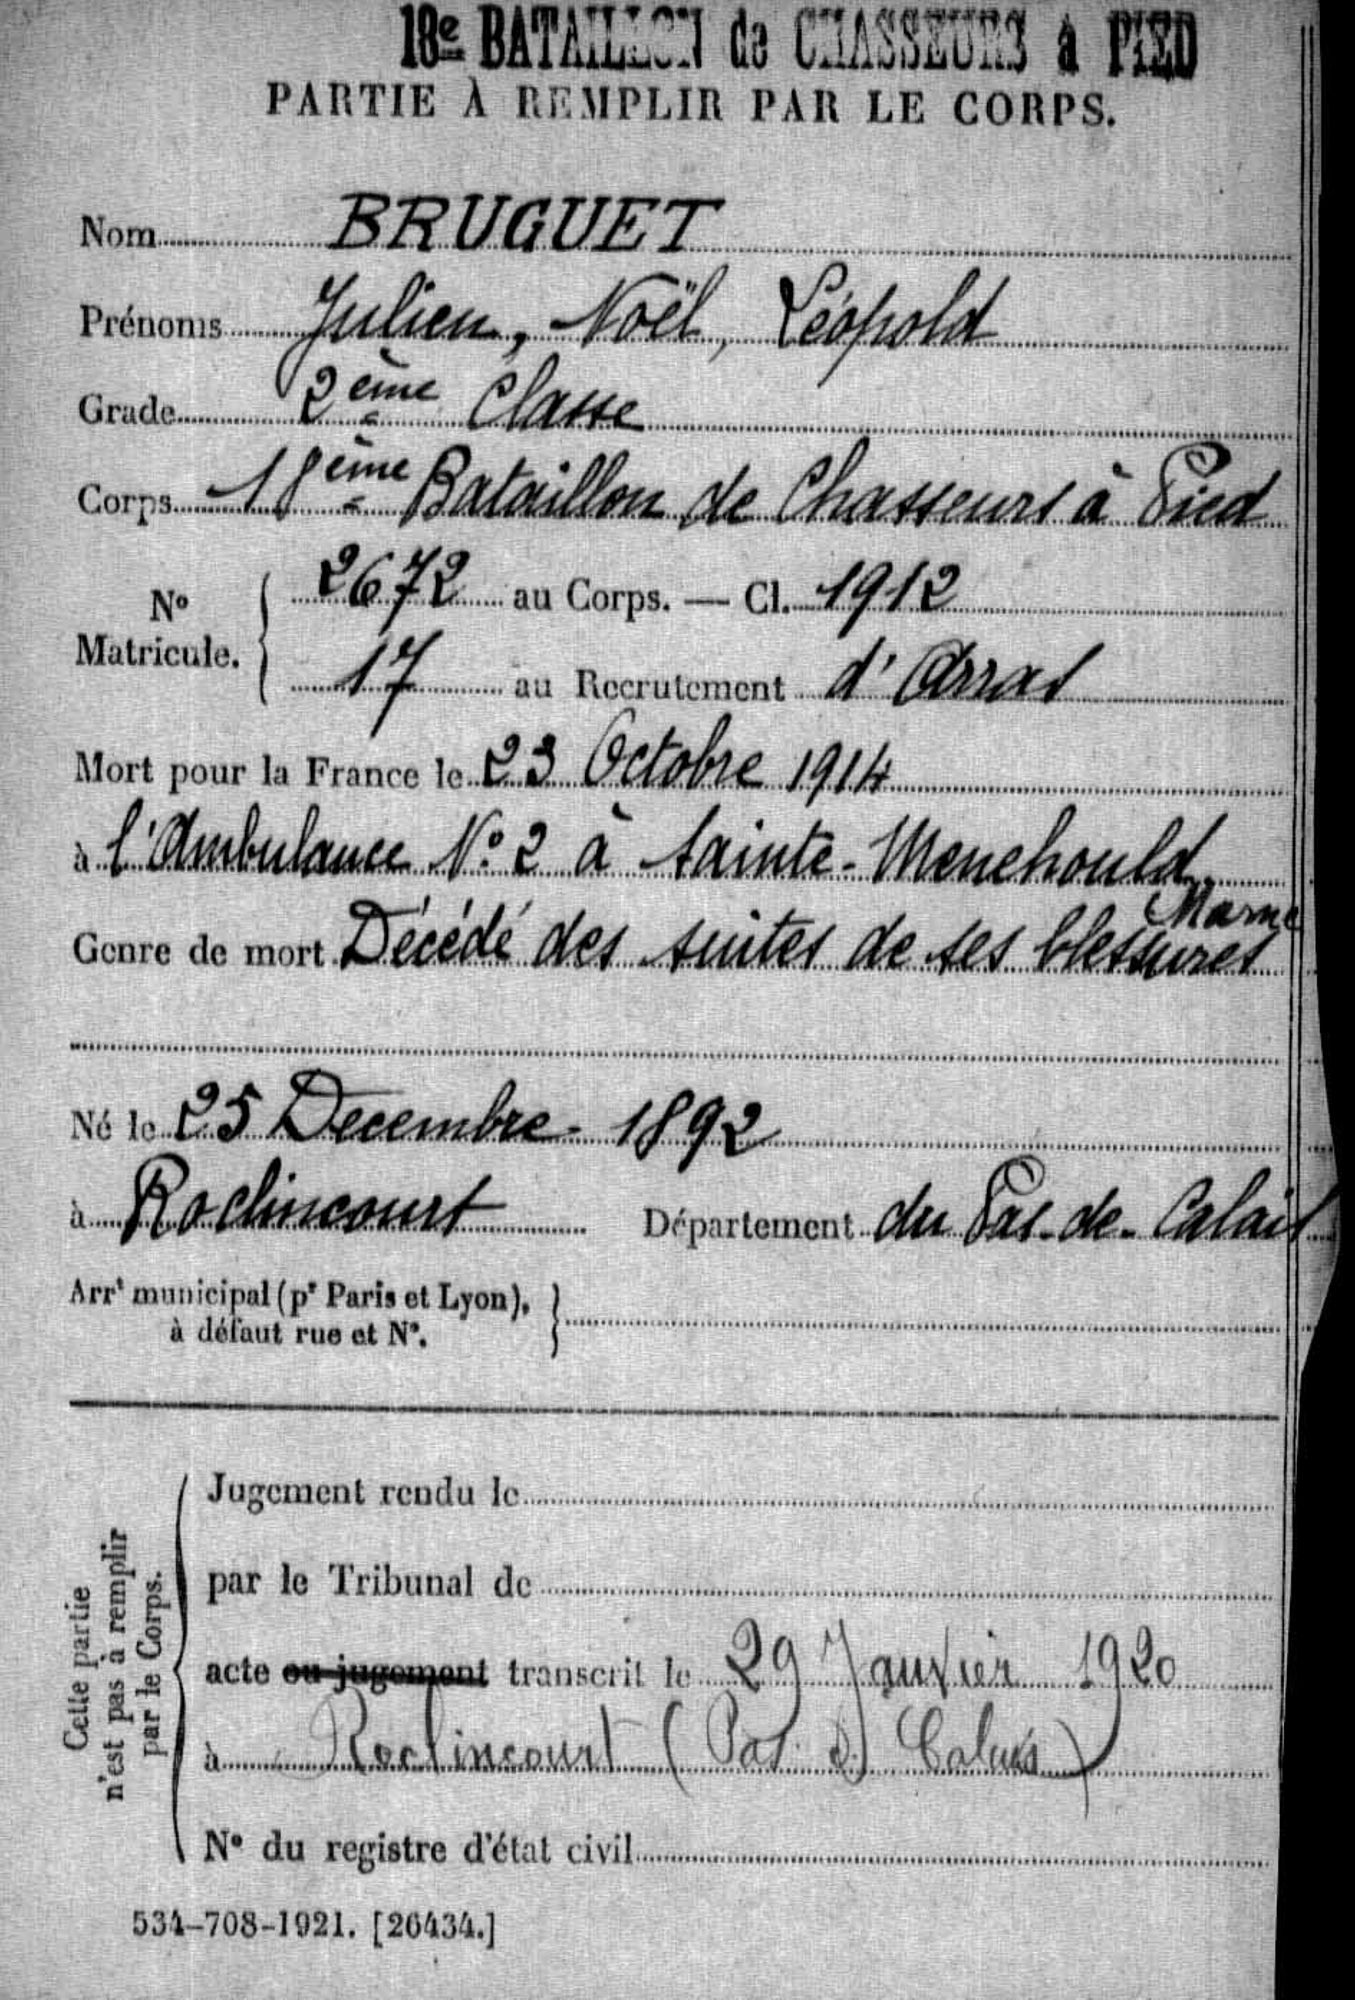 18e BATAILLON de CHASSEURS à PIED
PARTIE À REMPLIR PAR LE CORPS.
Nom BRUGUET
Prénoms Julien, Noël, Léopold
Grade 2ème Classe
Corps 18ème Bataillon de Chasseurs à Pied
No Matricule. { 2672 au Corps. — Cl. 1912
17 au Recrutement d'Arras
Mort pour la France le 23 Octobre 1914
à l'Ambulance No 2 à Sainte-Menehould
Marne
Genre de mort Décédé des suites de ses blessures
Né le 25 Decembre 1892
à Roclincourt Département du Pas-de-Calais
Arrt municipal (pr Paris et Lyon), }
à défaut rue et No.
Cette partie
n'est pas à remplir
par le Corps.
Jugement rendu le
par le Tribunal de
acte ou jugement transcrit le 29 Janvier 1920
à Roclincourt (Pas d. Calais)
No du registre d'état civil
534-708-1921. [26434.]